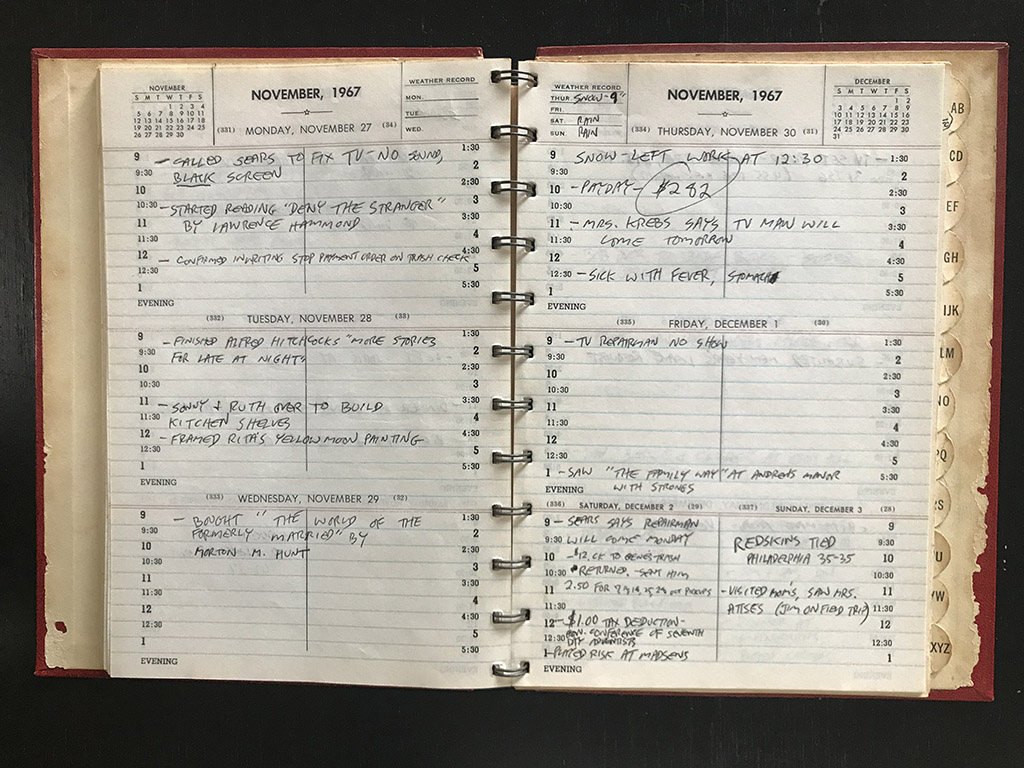 NOVEMBER
S M T W T F S
1 2 3 4
5 6 7 8 9 10 11
12 13 14 15 16 17 18
19 20 21 22 23 24 25
26 27 28 29 30
NOVEMBER, 1967
WEATHER RECORD
MON.
TUE.
WED.
(331) MONDAY, NOVEMBER 27 (34)
9 - CALLED SEARS TO FIX TV - NO SOUND, 1:30
9:30 BLACK SCREEN 2
10 2:30
10:30 - STARTED READING "DENY THE STRANGER" 3
11 BY LAWRENCE HAMMOND 3:30
11:30 4
12 - CONFIRMED IN WRITING STOP PAYMENT ORDER ON TRASH CHECK 4:30
12:30 5
1 5:30
EVENING
(332) TUESDAY, NOVEMBER 28 (33)
9 - FINISHED ALFRED HITCHCOCKS "MORE STORIES 1:30
9:30 FOR LATE AT NIGHT" 2
10 2:30
10:30 3
11 - SONNY & RUTH OVER TO BUILD 3:30
11:30 KITCHEN SHELVES 4
12 - FRAMED RITA'S YELLOW MOON PAINTING 4:30
12:30 5
1 5:30
EVENING
(333) WEDNESDAY, NOVEMBER 29 (32)
9 - BOUGHT "THE WORLD OF THE 1:30
9:30 FORMERLY MARRIED" BY 2
10 MORTON M. HUNT 2:30
10:30 3
11 3:30
11:30 4
12 4:30
12:30 5
1 5:30
EVENING
WEATHER RECORD
THUR. SNOW-9"
FRI.
SAT. RAIN
SUN. RAIN
NOVEMBER, 1967
DECEMBER
S M T W T F S
1 2
3 4 5 6 7 8 9
10 11 12 13 14 15 16
17 18 19 20 21 22 23
24 25 26 27 28 29 30
31
(334) THURSDAY, NOVEMBER 30 (31)
9 SNOW - LEFT WORK AT 12:30 1:30
9:30 2
10 - PAYDAY - $282 2:30
10:30 3
11 - MRS. KREBS SAYS TV MAN WILL 3:30
11:30 COME TOMORROW 4
12 4:30
12:30 - SICK WITH FEVER, STOMACH 5
1 5:30
EVENING
(335) FRIDAY, DECEMBER 1 (30)
9 - TV REPAIRMAN NO SHOW 1:30
9:30 2
10 2:30
10:30 3
11 3:30
11:30 4
12 4:30
12:30 5
1 - SAW "THE FAMILY WAY" AT ANDREWS MANOR 5:30
EVENING WITH STRONGS
(336) SATURDAY, DECEMBER 2 (29)
9 - SEARS SAYS REPAIRMAN
9:30 WILL COME MONDAY
10 - $12. CK TO GENES TRASH
10:30 RETURNED. SENT HIM
11 2.50 FOR OCT PICKUPS
11:30
12 - $1.00 TAX DEDUCTION -
12:30 CONFERENCE OF SEVENTH
DAY ADVENTISTS
1 - PLAYED RISK AT MADSENS
EVENING
(337) SUNDAY, DECEMBER 3 (28)
9
REDSKINS TIED 9:30
PHILADELPHIA 35-35 10
10:30
- VISITED MOM'S, SAW MRS. 11
(JIM ON FIELD TRIP) 11:30
12
12:30
1
AB
CD
EF
GH
IJK
LM
NO
PQ
RS
U
VW
XYZ